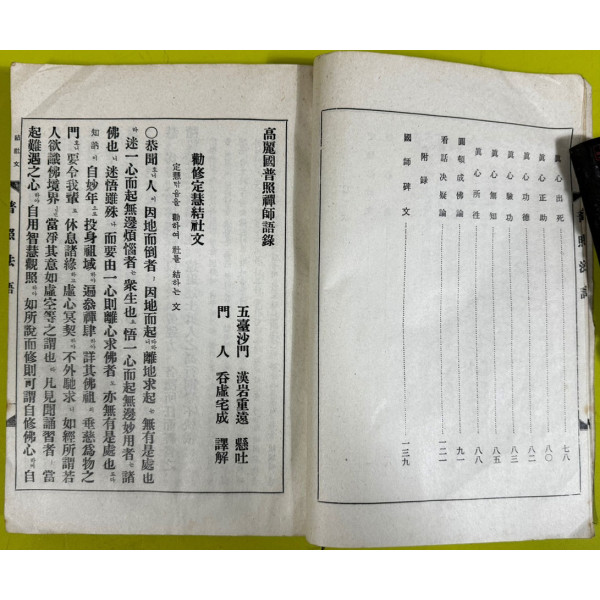 眞心出死 七八
眞心正助 八〇
眞心功德 八二
眞心驗功 八三
眞心無知 八五
眞心所往 八八
圓頓成佛論 九一
看話決疑論 一二一
附錄
國師碑文 一三九
高麗國普照禪師語錄
勸修定慧結社文
定慧닦음을 勸하여 社를 結하는 文
五臺沙門 漢岩重遠 懸吐
門人 呑虛宅成 譯解
〇恭聞人因地而倒者因地而起離地求起無有是處也
迷一心而起無邊煩惱者衆生也悟一心而起無邊妙用者諸
佛也迷悟雖殊而要由一心則離心求佛者亦無有是處也
知訥自妙年投身祖域遍參禪肆詳其佛祖垂慈爲物之
門要令我輩休息諸緣虛心冥契不外馳求如經所謂若
人欲識佛境界當淨其意如虛空等之謂也凡見聞誦習者當
起難遇之心自用智慧觀照如所說而修則可謂自修佛心自
結社文
普照法語